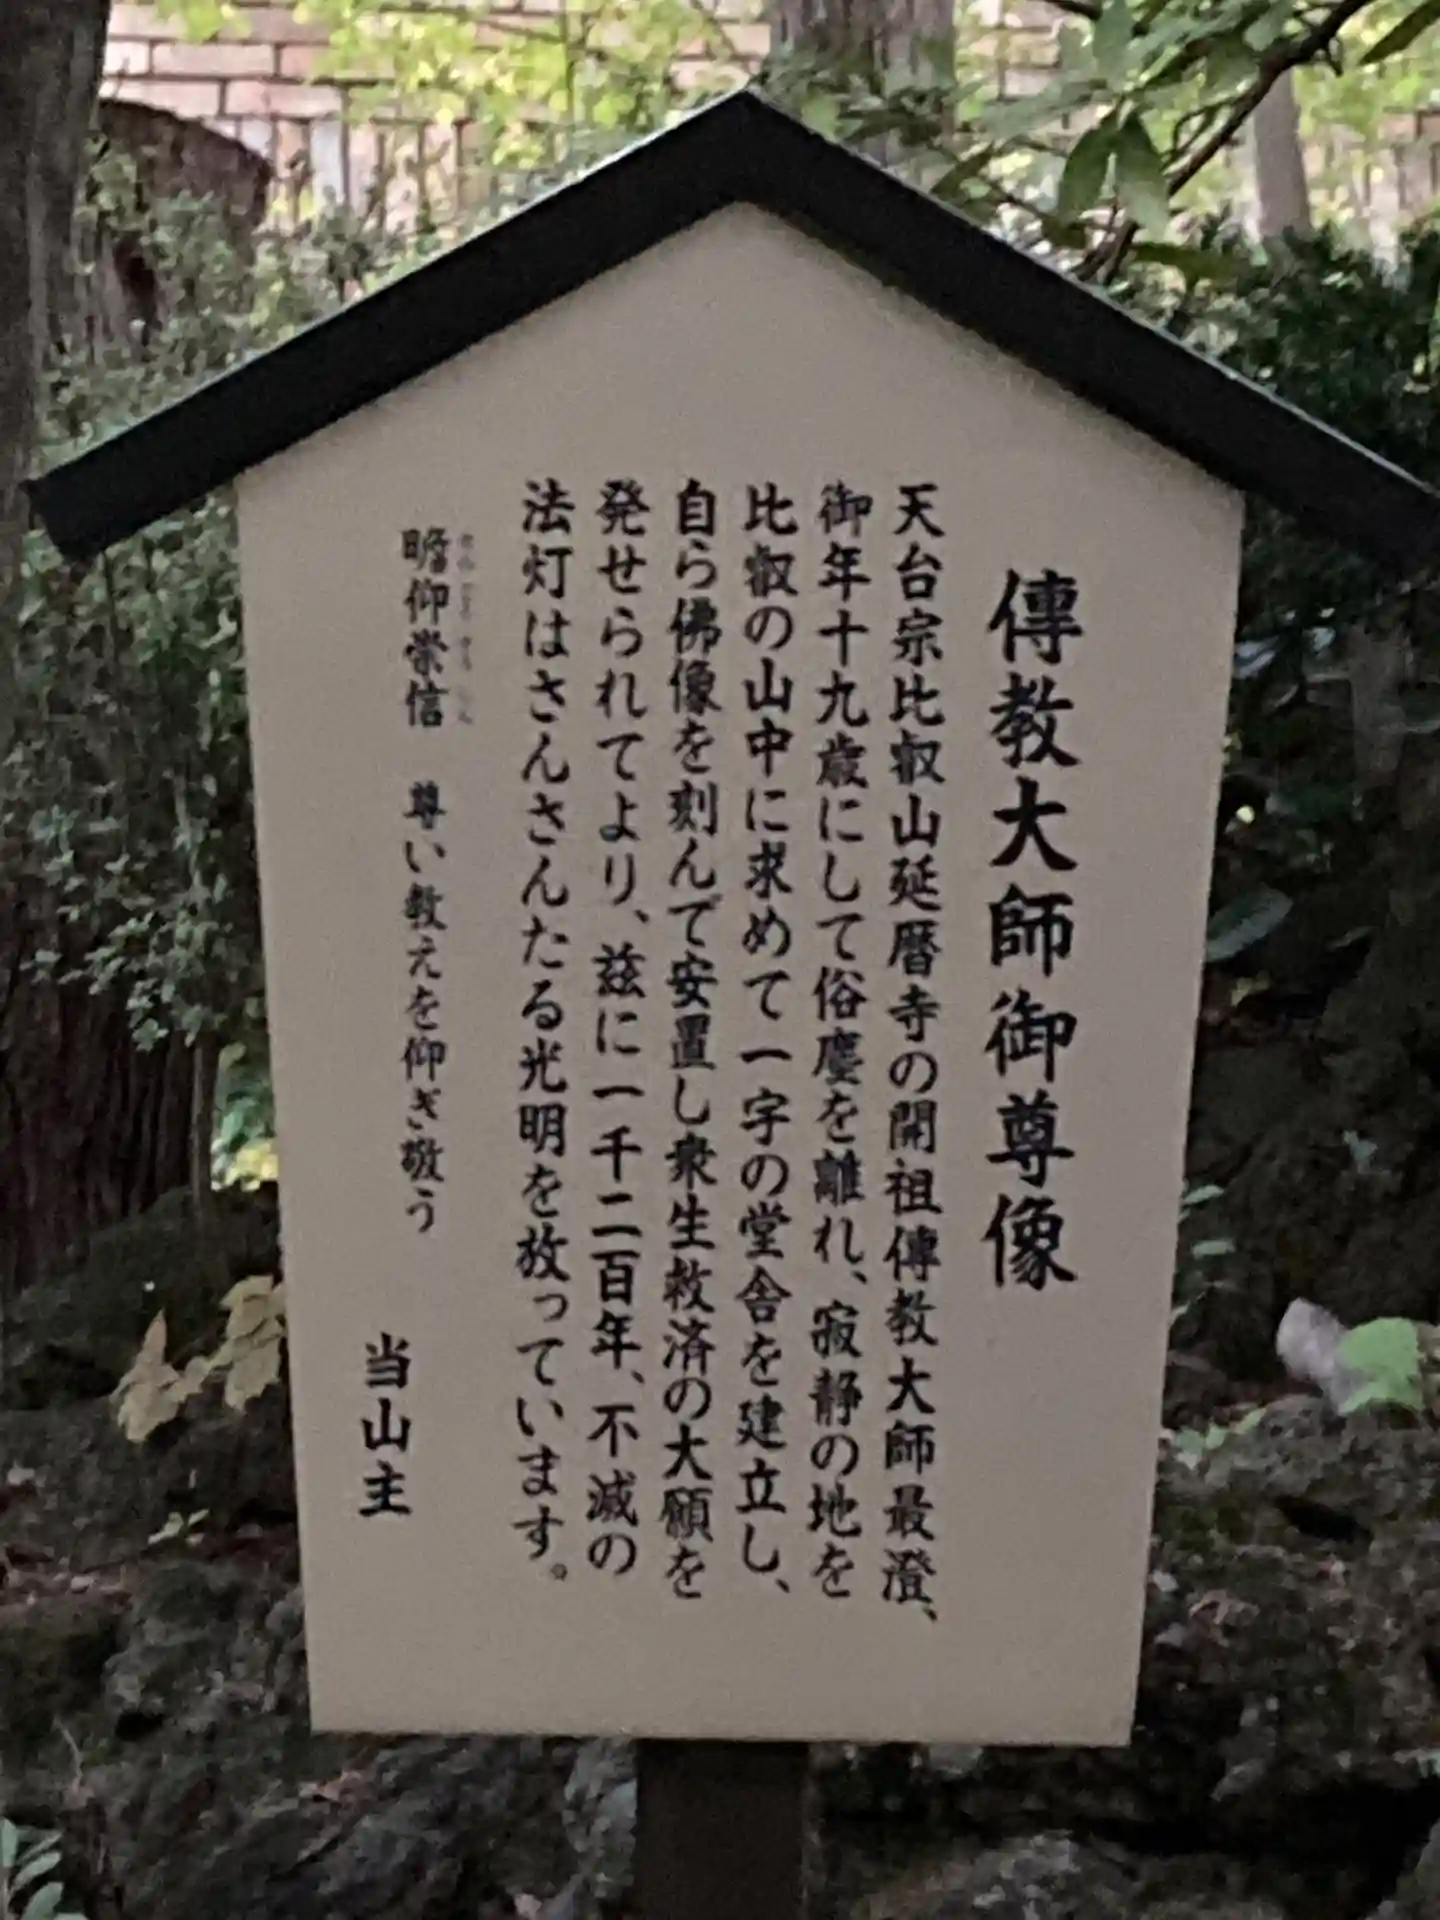 傳教大師御尊像
天台宗比叡山延暦寺の開祖傳教大師最澄、
御年十九歳にして俗塵を離れ、寂静の地を
比叡の山中に求めて一宇の堂舎を建立し、
自ら佛像を刻んで安置し衆生救済の大願を
発せられてより、兹に一千二百年、不滅の
法灯はさんさんたる光明を放っています。
瞻仰崇信 尊い教えを仰ぎ敬う
当山主